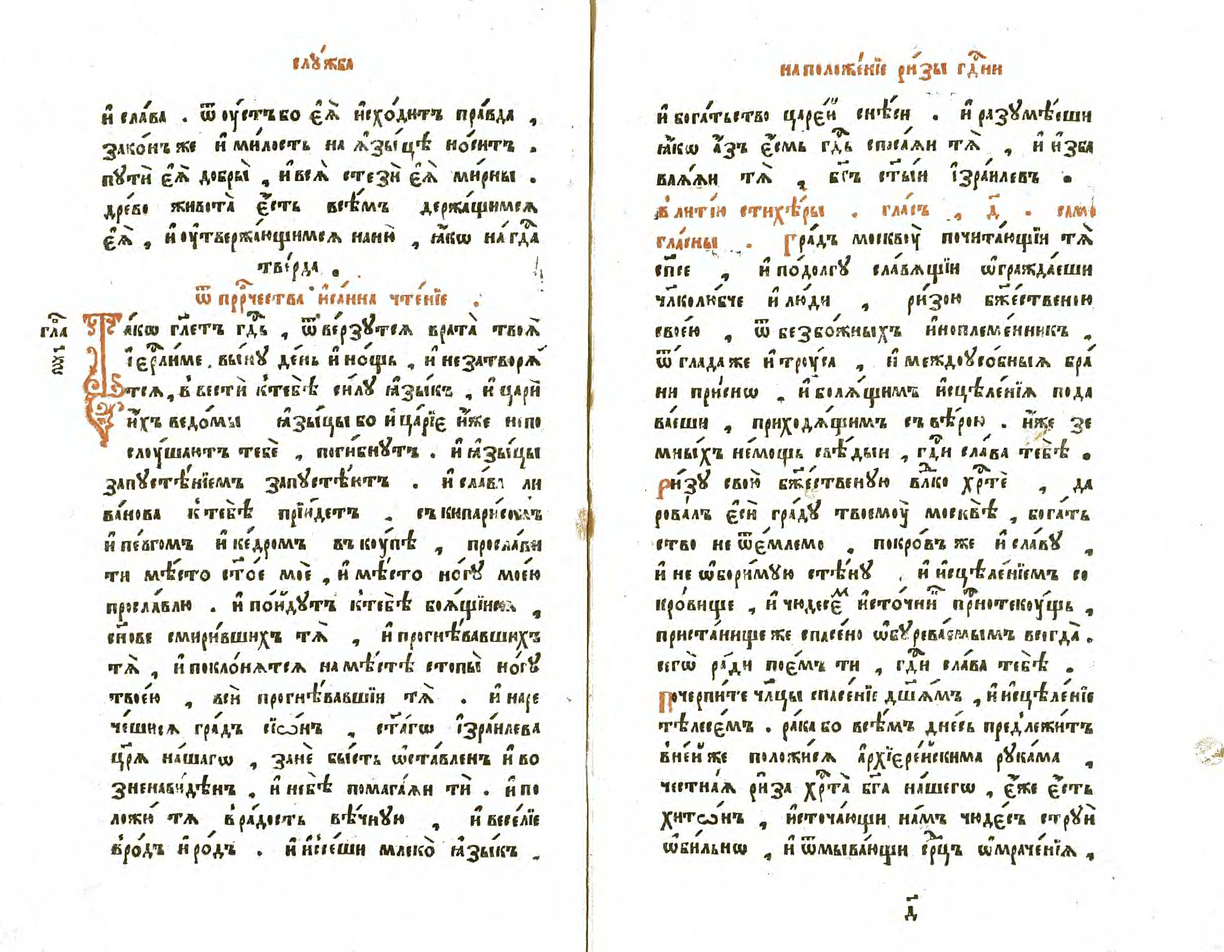 слꙋ́жба
и҆ сла́ва . ѿ оу҆́стъ бо є҆ѧ̀ и҆схо́дитъ пра́вда ,
зако́нъ же и҆ ми́лость на ѧ҆зы́цѣ но́ситъ .
пꙋтѝ є҆ѧ̀ добры̀ , и҆ всѧ̀ стезѝ є҆ѧ̀ ми́рны .
дре́во живота̀ є҆́сть всѣ́мъ держа́щимсѧ
є҆ѧ̀ , и҆ оу҆тверже́ющимсѧ на ню̀ , ꙗ҆́кѡ на гдⷭ҇а
тве́рда .
ѿ прⷪ҇рчества и҆са́иина чте́нїе .
гла
Та́кѡ гл҃етъ гдⷭ҇ь , ѿве́рзꙋтсѧ врата̀ твоѧ̀
і҆ер҃ли́ме , вы́нꙋ де́нь и҆ но́щь , и҆ не затворѧ́
тсѧ , ввестѝ к̾ тебѣ̀ си́лꙋ ꙗ҆зы́къ , и҆ царѝ
и҆́хъ ведо́мы ꙗ҆зы́цы бо и҆ ца́рїе и҆̀же непо
слꙋ́шаютъ тебѐ , поги́бнꙋтъ . и҆ ꙗ҆зы́цы
запꙋстѣ́нїемъ запꙋстѣ́ютъ . и҆ сла́ва ли
ва́нова к̾ тебѣ̀ прїи́детъ . съ кипари́сомъ
и҆ пе́вгомъ и҆ ке́дромъ вкꙋ́пѣ , просла́ви
ти мѣ́сто ст҃о́е моѐ , и҆ мѣ́сто но́гꙋ моє́ю
просла́влю . и҆ по́йдꙋтъ к̾ тебѣ̀ боѧ́щїисѧ ,
сн҃ове смири́вшихъ тѧ̀ , и҆ прогнѣ́вавшихъ
тѧ̀ , и҆ покло́нѧтсѧ на мѣ́стѣ стопы̀ но́гꙋ
твоє́ю , всѝ прогнѣ́вавшїи тѧ̀ . и҆ наре
че́шисѧ гра́дъ сїѡ́нъ , ст҃а́гѡ і҆зра́илева
цр҃ѧ̀ на́шагѡ , занѐ бы́сть ѡ҆ста́вленъ и҆ во
зненави́дѣнъ , и҆ не бѣ̀ помага́ѧи тѝ . и҆ по
ложю̀ тѧ̀ в̾ ра́дость вѣ́чнꙋю , и҆ весе́лїе
в̾ ро́дъ и҆ ро́дъ . и҆ и҆ссе́ши млеко̀ ꙗ҆зы́къ .
на положе́нїе ри́зы гдⷭ҇ни
и҆ бога́тьство царе́й снѣ́си . и҆ разꙋмѣ́еши
ꙗ҆́кѡ а҆́зъ є҆́смь гдⷭ҇ь спаса́ѧи тѧ̀ , и҆ и҆зба
влѧ́ѧи тѧ̀ , бг҃ъ ст҃ы́й і҆зра́илевъ .
в̾ литі́ю стихѣ́ры . гла́съ , д҃ . само
гла́сны . Гра́дъ москвꙋ̀ почита́ющїи тѧ̀
сп҃се , и҆ по до́лгꙋ сла́вѧщїи ѡ҆гражда́еши
чл҃колю́бче и҆ лю́ди , ри́зою бж҃е́ственою
своє́ю , ѿ безбо́жныхъ и҆ноплеме́нникъ ,
ѿ гла́да же и҆ трꙋ́са , и҆ междоусо́бныѧ бра́
ни при́снѡ , и҆ болѧ́щимъ и҆сцѣле́нїѧ пода
ва́еши , приходѧ́щимъ съ вѣ́рою . и҆́же зе
мны́хъ не́мощь свѣ́дыи , гдⷭ҇и сла́ва тебѣ̀ .
Ри́зꙋ свою̀ бж҃е́ственꙋю влⷣко хрⷭ҇тѐ , да
рова́лъ є҆сѝ гра́дꙋ твоемꙋ̀ москвѣ̀ , бога́ть
ство не ѿе́млемо , покро́въ же и҆ сла́вꙋ ,
и҆ не ѡ҆бори́мꙋю стѣ́нꙋ , и҆ и҆сцѣле́нїемъ со
кро́вище , и҆ чюдесе́мъ и҆сто́чникъ приснотекꙋ́щь ,
приста́нище же спасе́но ѡ҆бꙋрева́емымъ всегда̀ .
сегѡ̀ ра́ди пое́мъ ти , гдⷭ҇и сла́ва тебѣ̀ .
Почерпи́те чл҃цы спасе́нїе дш҃а́мъ , и҆ и҆сцѣле́нїе
тѣлесе́мъ . ра́ка бо всѣ́мъ дне́сь предлежи́тъ
в̾ не́й же положи́сѧ а҆рхїере́йскима рꙋка́ма ,
честна́ѧ ри́за хрⷭ҇та̀ бг҃а на́шегѡ , є҆́же є҆́сть
хитѡ́нъ , и҆сточа́ющи на́мъ чюде́съ стрꙋѝ
ѡ҆би́льнѡ , и҆ ѡ҆мыва́ющи се́рцъ ѡ҆мраче́нїѧ ,
д҃